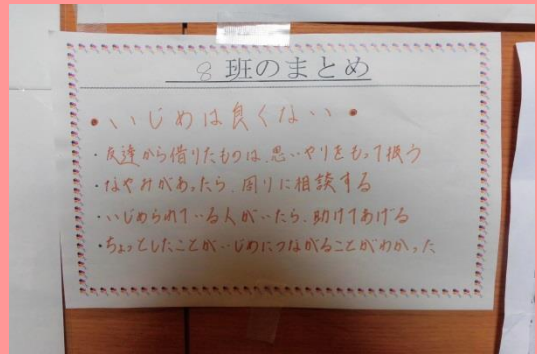 8 班のまとめ
• いじめは良くない •
・友達から借りたものは、思いやりをもって扱う
・なやみがあったら、周りに相談する
・いじめられている人がいたら、助けてあげる
・ちょっとしたことがいじめにつながることがわかった